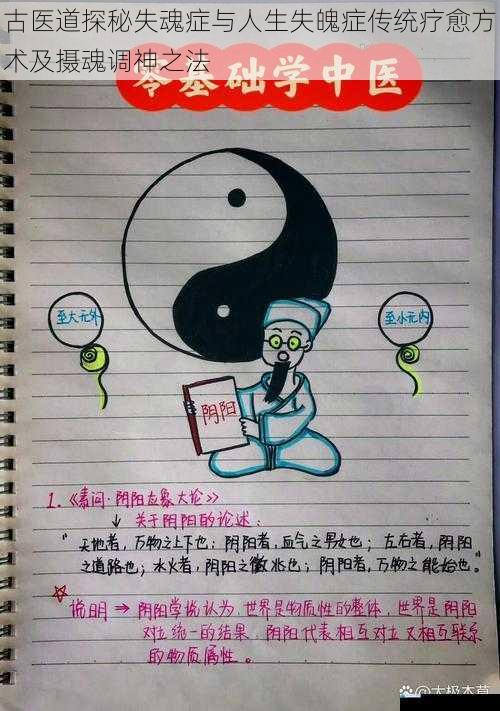 古医道探秘失魂症与人生失魄症传统疗愈方
术及摄魂调神之法
零基础学中医
至大无外
至小无内
阴阳
1.《素问·阴阳应象大论》
↓ 关于阴阳的论述：
"天地者，万物之上下也；阴阳者，血气之男女也；左右者，阴阳
之道路也；水火者，阴阳之徵兆也；阴阳者，万物之能始也。"
☆ 说明 → 阴阳学说认为，世界是物质性的整体，世界是阴阳
对立统一的结果，阴阳代表相互对立又相互联系
的物质属性。
@太极本草